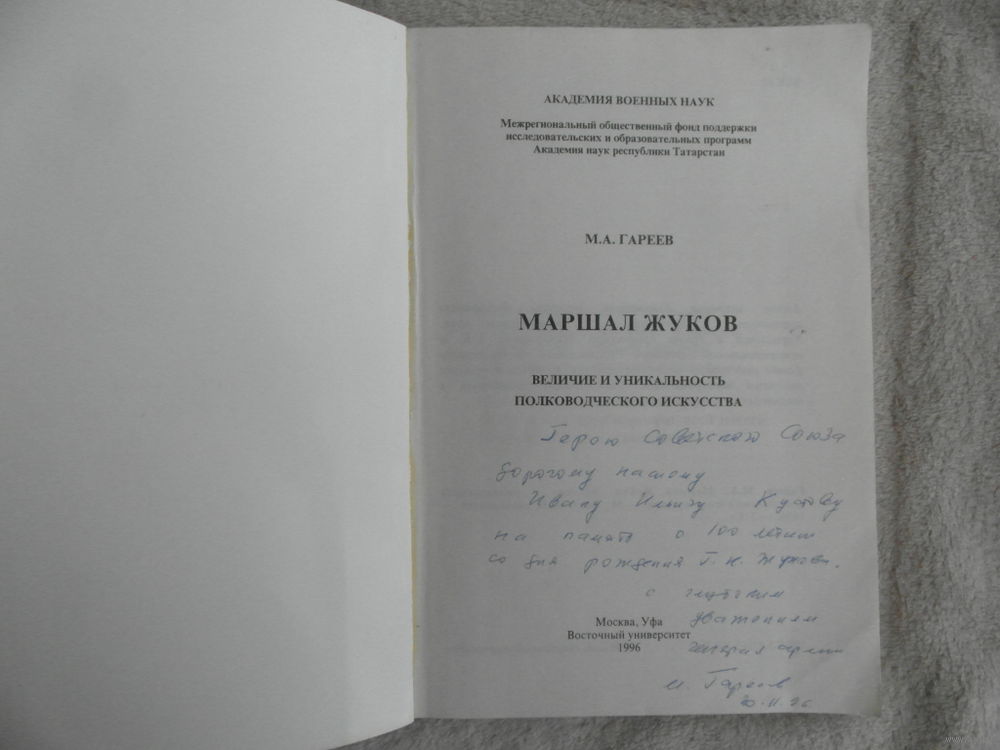 АКАДЕМИЯ ВОЕННЫХ НАУК
Межрегиональный общественный фонд поддержки
исследовательских и образовательных программ
Академия наук республики Татарстан
М.А. ГАРЕЕВ
МАРШАЛ ЖУКОВ
ВЕЛИЧИЕ И УНИКАЛЬНОСТЬ
ПОЛКОВОДЧЕСКОГО ИСКУССТВА
Герою Советского Союза
дорогому нашему
Ивану Ильичу Кустову
на память о 100 летии
со дня рождения Г. К. Жукова.
с глубоким
уважением
генерал армии
М. Гареев
Москва, Уфа
Восточный университет
1996